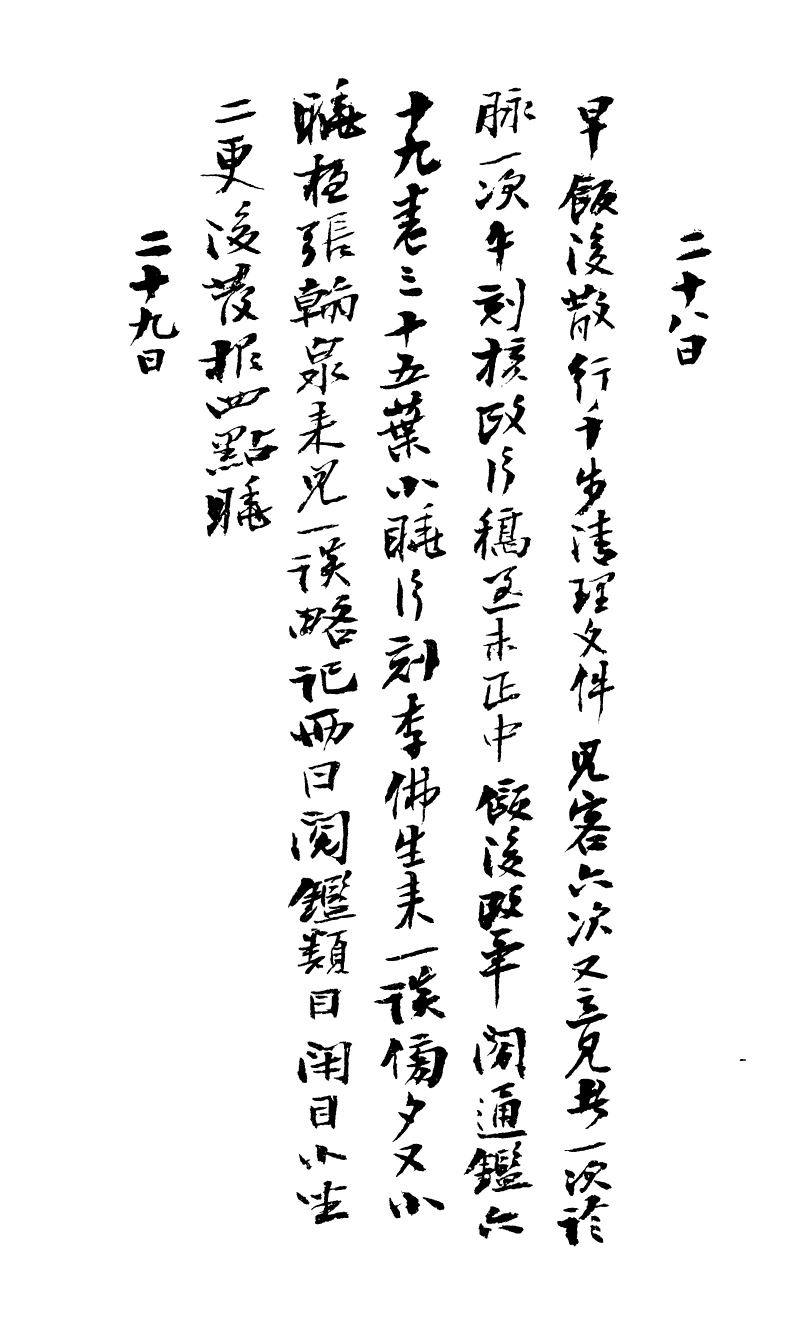 二十八日
早飯後散行千步清理文件見客六次又立見者一次診
脉一次午刻核改信稿至未正中飯後改畢閱通鑑六
十九卷三十五葉小睡片刻李佛生來一談傍夕又小
睡夜張翰泉來見一談略記冊日閱鑑類目閉目小坐
二更後發根四點睡
二十九日